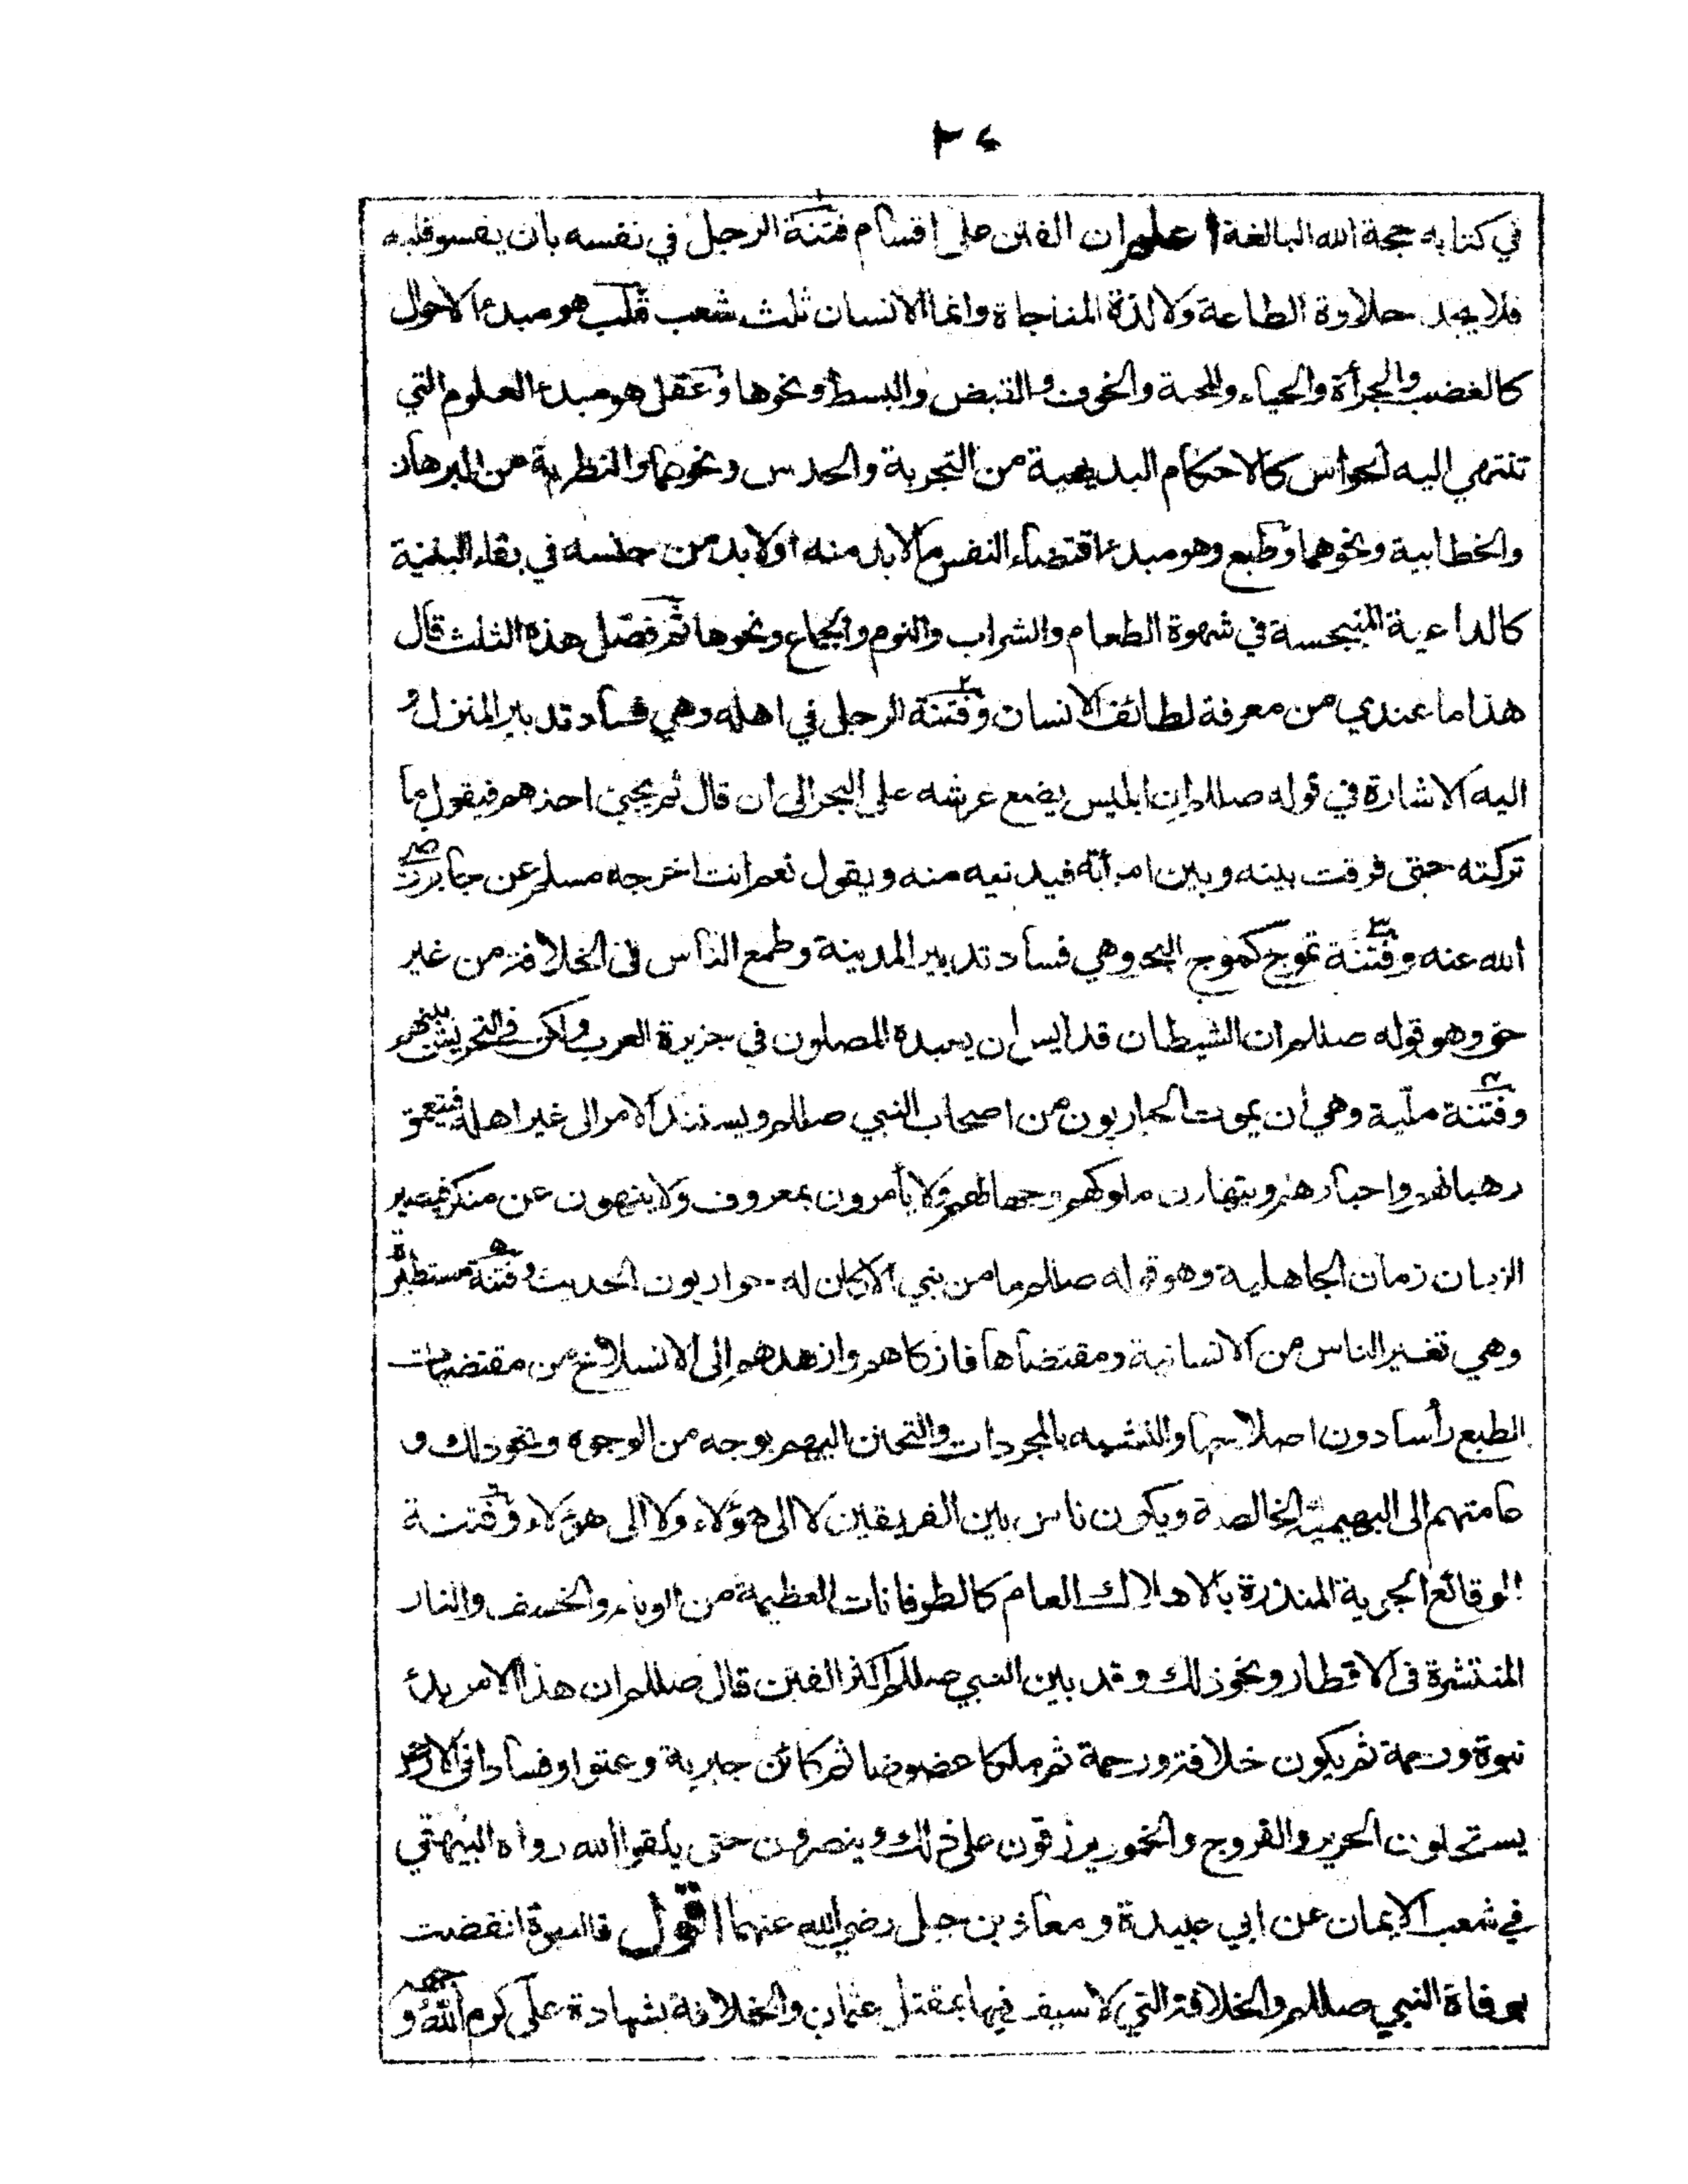 ٢٤
في كتابه حجة الله البالغة اعلم ان الفتن على اقسام فتنة الرجل في نفسه بان يقسو قلبه
فلا يجد حلاوة الطاعة ولا لذة المناجاة وانما الانسان ثلث شعب قلب هو مبدء الاحوال
كالغضب والجرأة والحياء والمحبة والخوف والقبض والبسط ونحوها وعقل هو مبدء العلوم التي
تنتهي اليه الحواس كالاحكام البديهية من التجربة والحدس ونحوهما والنظرية من البرهان
والخطابية ونحوهما وطبع وهو مبدء اقتضاء النفس مالابد منه اولابد من جنسه في بقاء البنية
كالداعية المنبجسة في شهوة الطعام والشراب والنوم والجماع ونحوها ثم فصّل هذه الثلث قال
هذا ما عندي من معرفة لطائف الانسان و٢فتنة الرجل في اهله وهي فساد تدبير المنزل و
اليه الاشارة في قوله صللم ان ابليس يضع عرشه على البحر الى ان قال ثم يجيئ احدهم فيقول ما
تركته حتى فرقت بينه وبين امرأته فيدنيه منه ويقول نعم انت اخرجه مسلم عن جابر رضي
الله عنه و٣فتنة تموج كموج البحر وهي فساد تدبير المدينة وطمع الناس فى الخلافة من غير
حق وهو قوله صللم ان الشيطان قد ايس ان يعبده المصلون في جزيرة العرب ولكن في التحريش بينهم
و٤فتنة ملّية وهي ان يموت الحواريون من اصحاب النبي صللم ويستند الامر الى غير اهله فيتعمق
رهبانهم واحبارهم ويتهاون ملوكهم وجهالهم ولا يأمرون بمعروف ولا ينهون عن منكر فيصير
الزمان زمان الجاهلية وهو قوله صللم ما من نبي الا كان له حواريون الحديث و٥فتنة مستطيرة
وهي تغير الناس من الانسانية ومقتضاها فازكاهم وازهدهم الى الانسلاخ من مقتضيات
الطبع رأسا دون اصلاحها والتشبه بالمجردات والتحنن اليهم بوجه من الوجوه ونحو ذلك و
عامتهم الى البهيمية الخالصة ويكون ناس بين الفريقين لا الى هؤلاء ولا الى هؤلاء و٦فتنة
الوقائع الجوية المنذرة بالاهلاك العام كالطوفانات العظيمة من الوباء والخسف والنار
المنتشرة فى الاقطار ونحو ذلك وقد بين النبي صللم اكثر الفتن قال صللم ان هذا الامر بدأ
نبوة ورحمة ثم يكون خلافة ورحمة ثم ملكا عضوضا ثم كائن جبرية وعتوا وفسادا فى الارض
يستحلون الحرير والفروج والخمور يرزقون على ذلك وينصرون حتى يلقوا الله رواه البيهقي
في شعب الايمان عن ابي عبيدة ومعاذ بن جبل رضي الله عنهما اقول فالنبوة انقضت
بوفاة النبي صللم والخلافة التي لا سيف فيها بمقتل عثمان والخلافة بشهادة علي كرم الله وجهه و